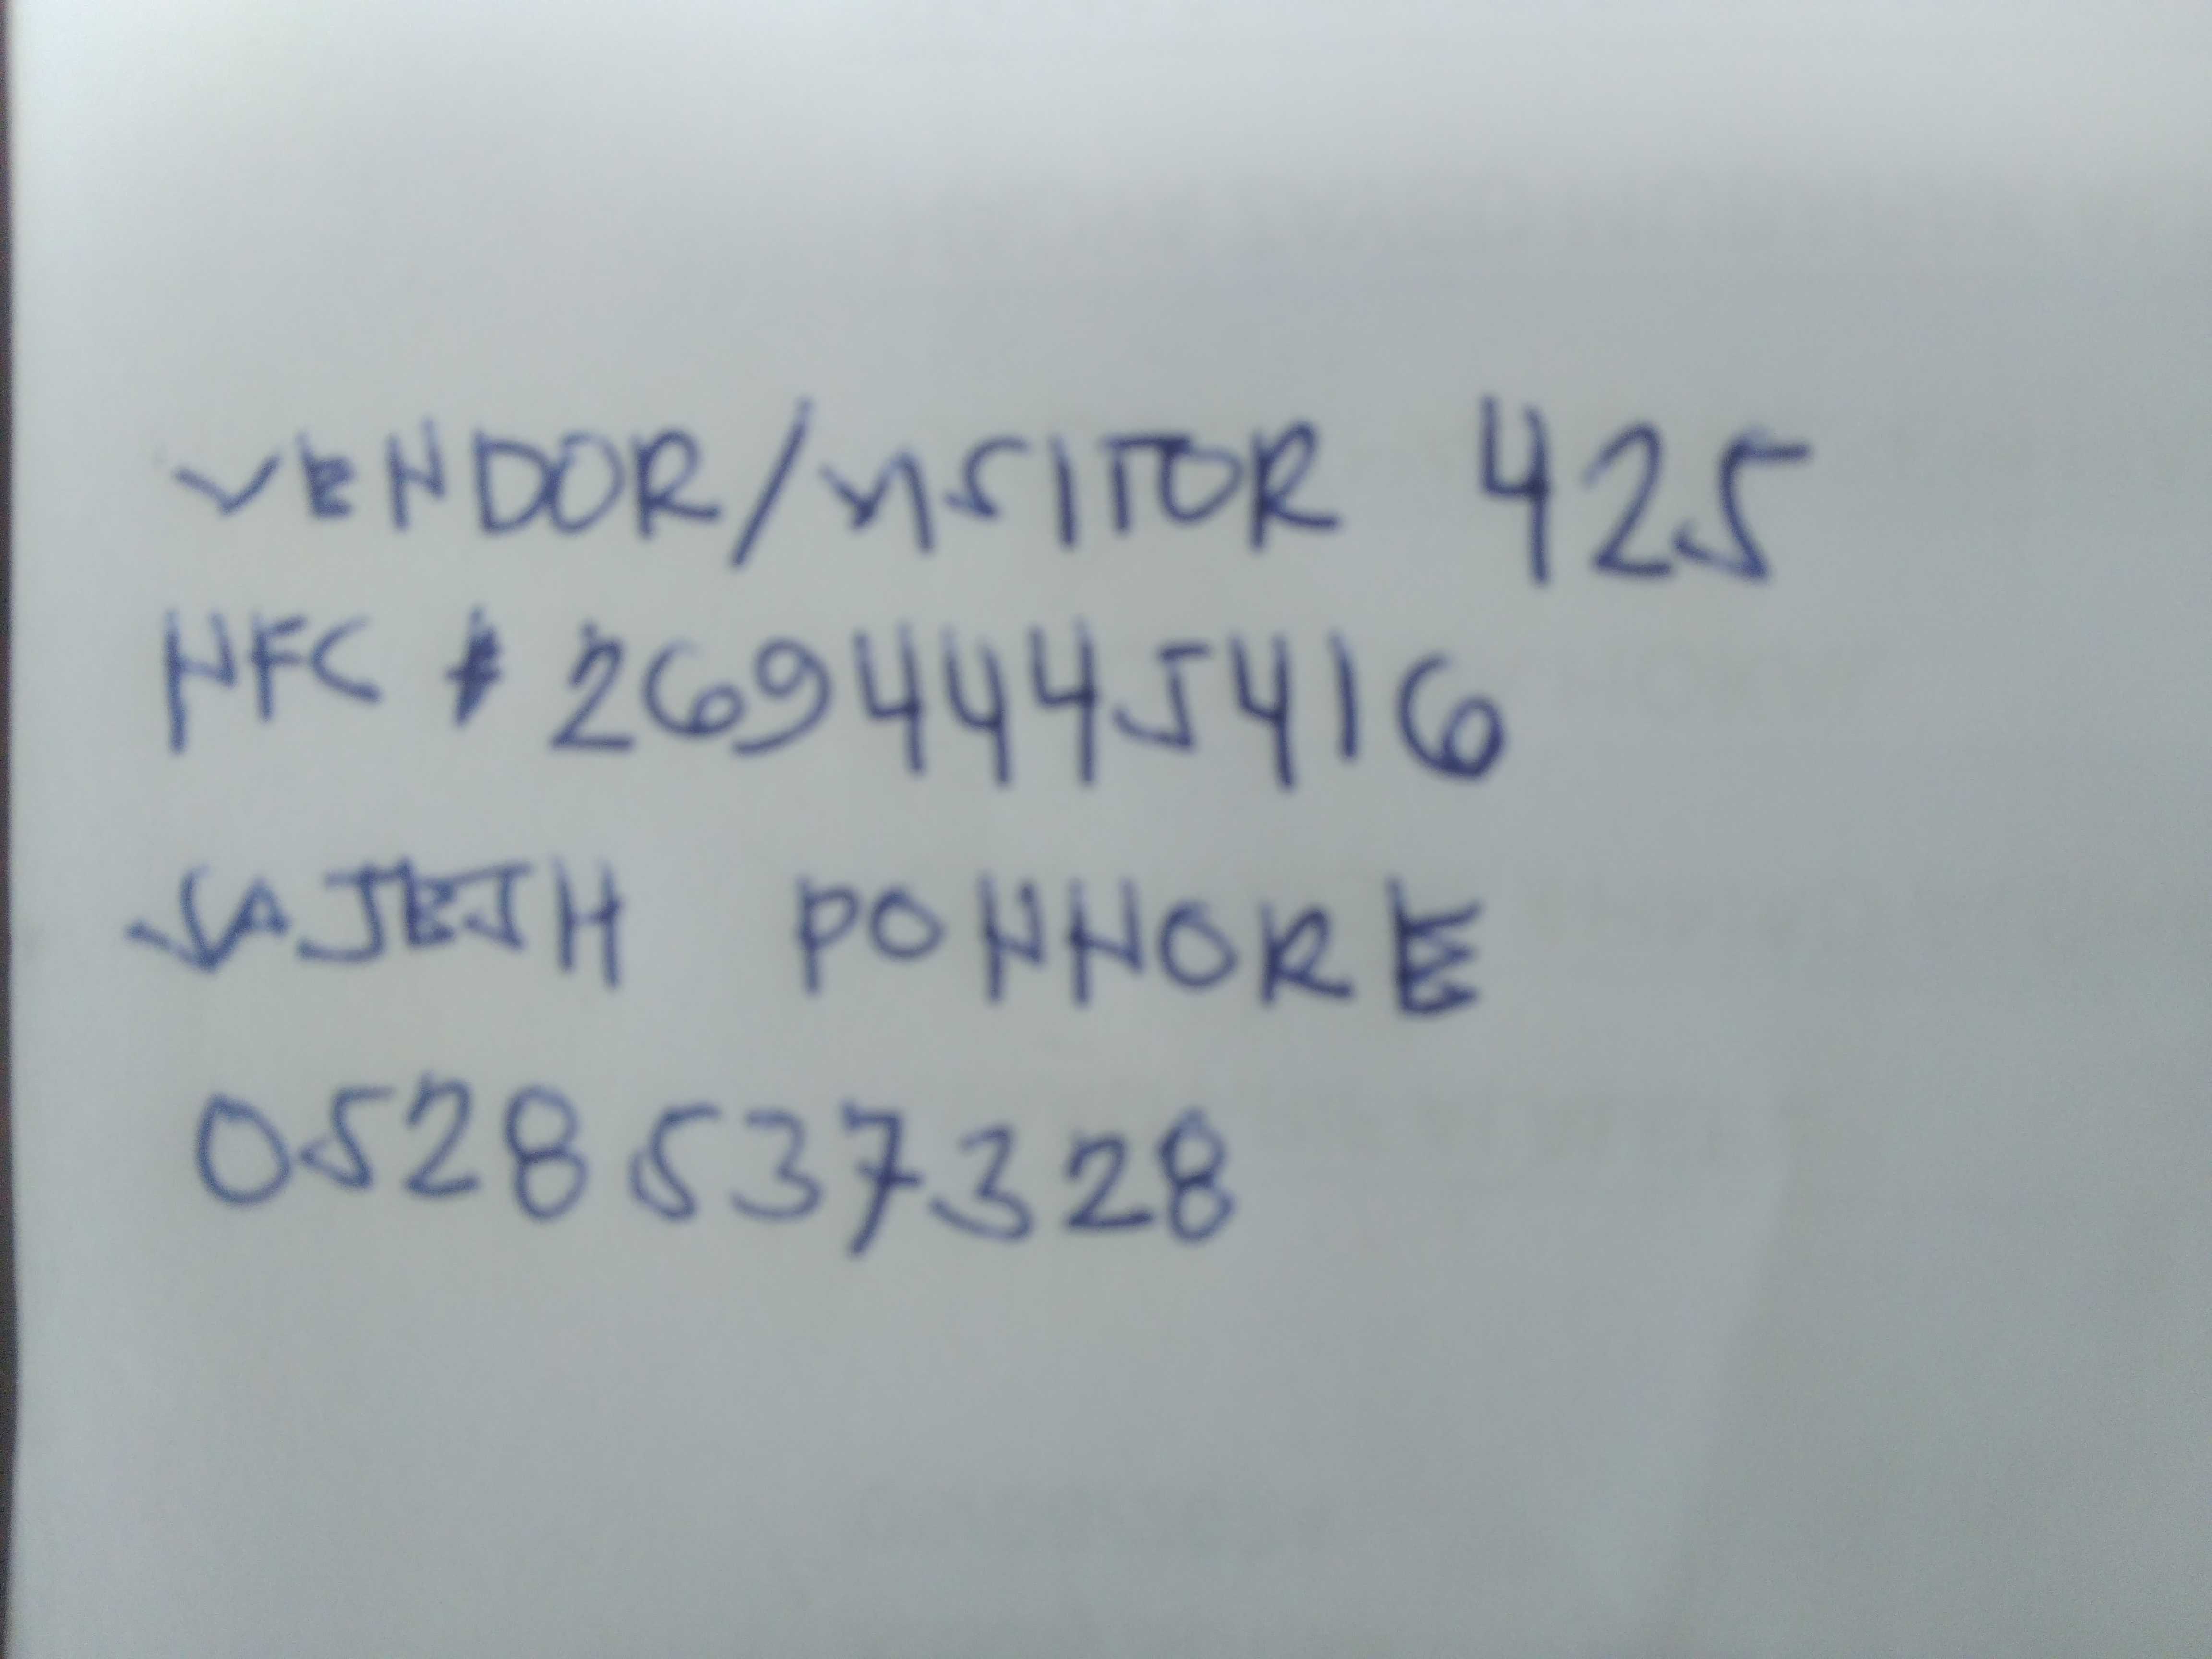 VENDOR/VISITOR 425
NFC # 2694445416
SAJESH PONNORE
0528537328